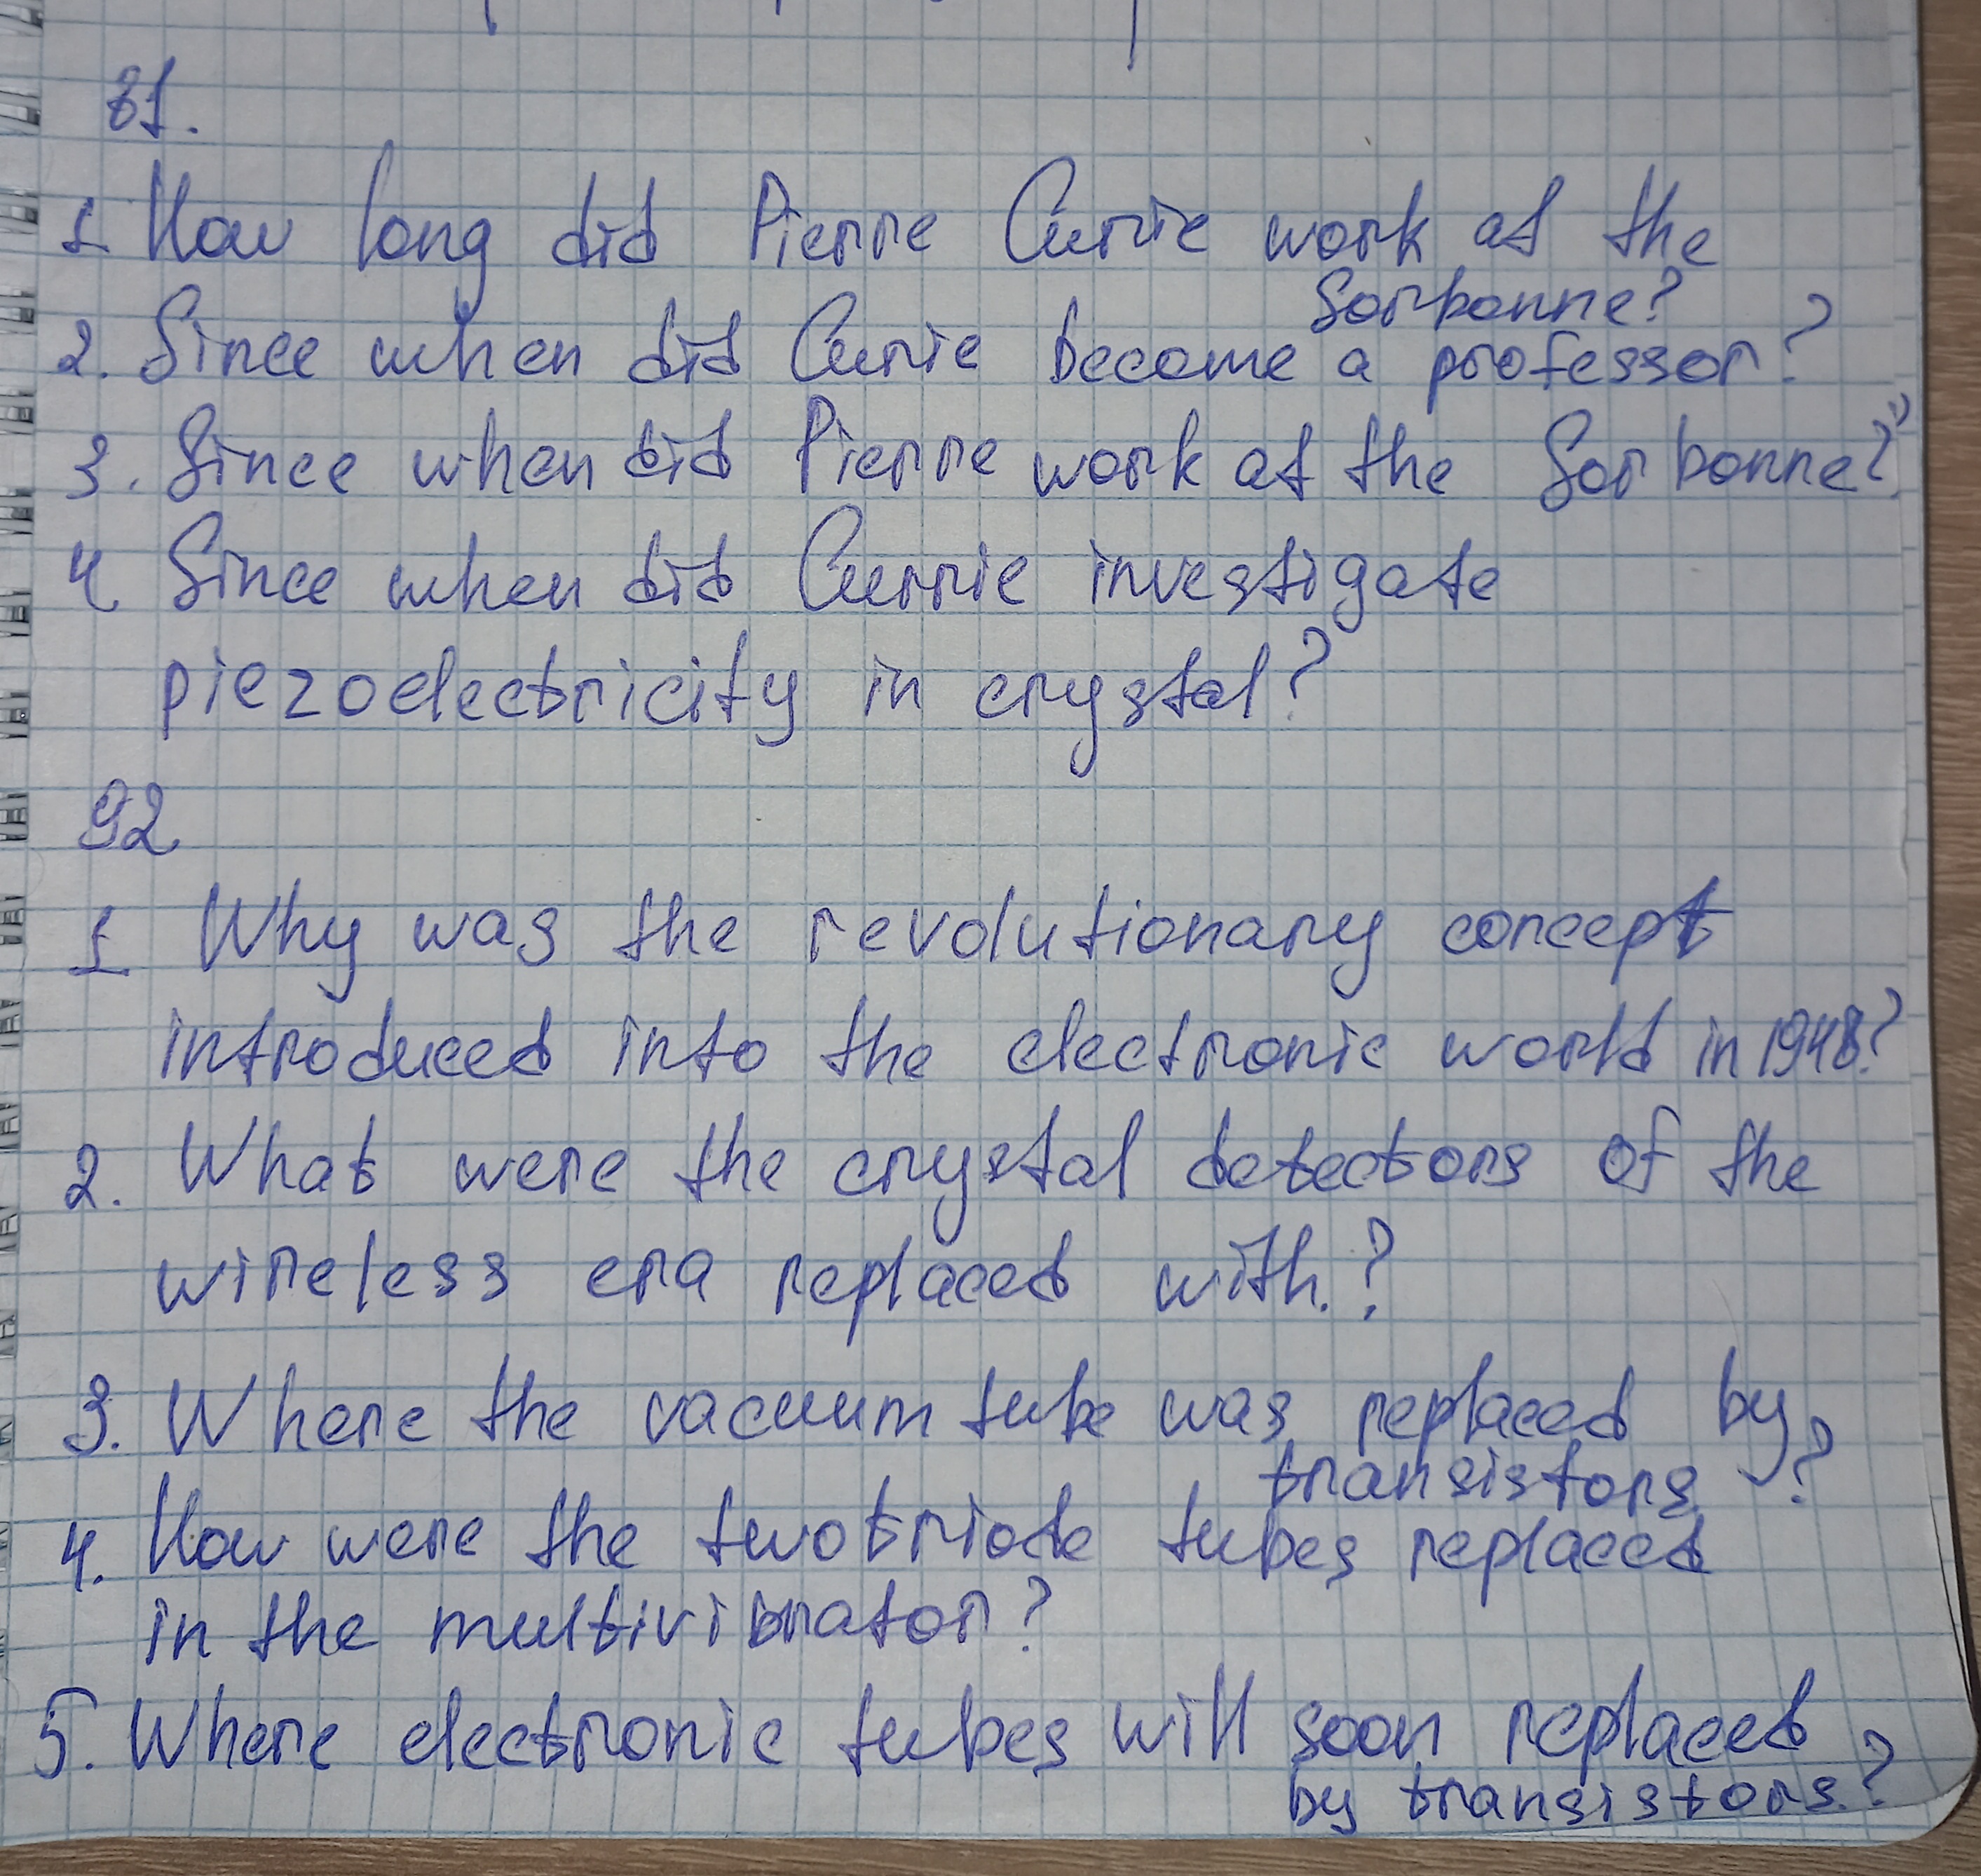 81.
1 How long did Pierre Curie work at the
Sorbonne?
2. Since when did Curie become a professor?
3. Since when did Pierre work at the Sorbonne?"
4 Since when did Currie investigate
piezoelectricity in crystal?
92
1 Why was the revolutionary concept
introduced into the electronic world in 1948?
2. What were the crystal detectors of the
wireless era replaced with.?
3. Where the vacuum tube was replaced by
transistors ?
4. How were the two triode tubes replaced
in the multivibrator?
5. Where electronic tubes will soon replaced
by transistors.?